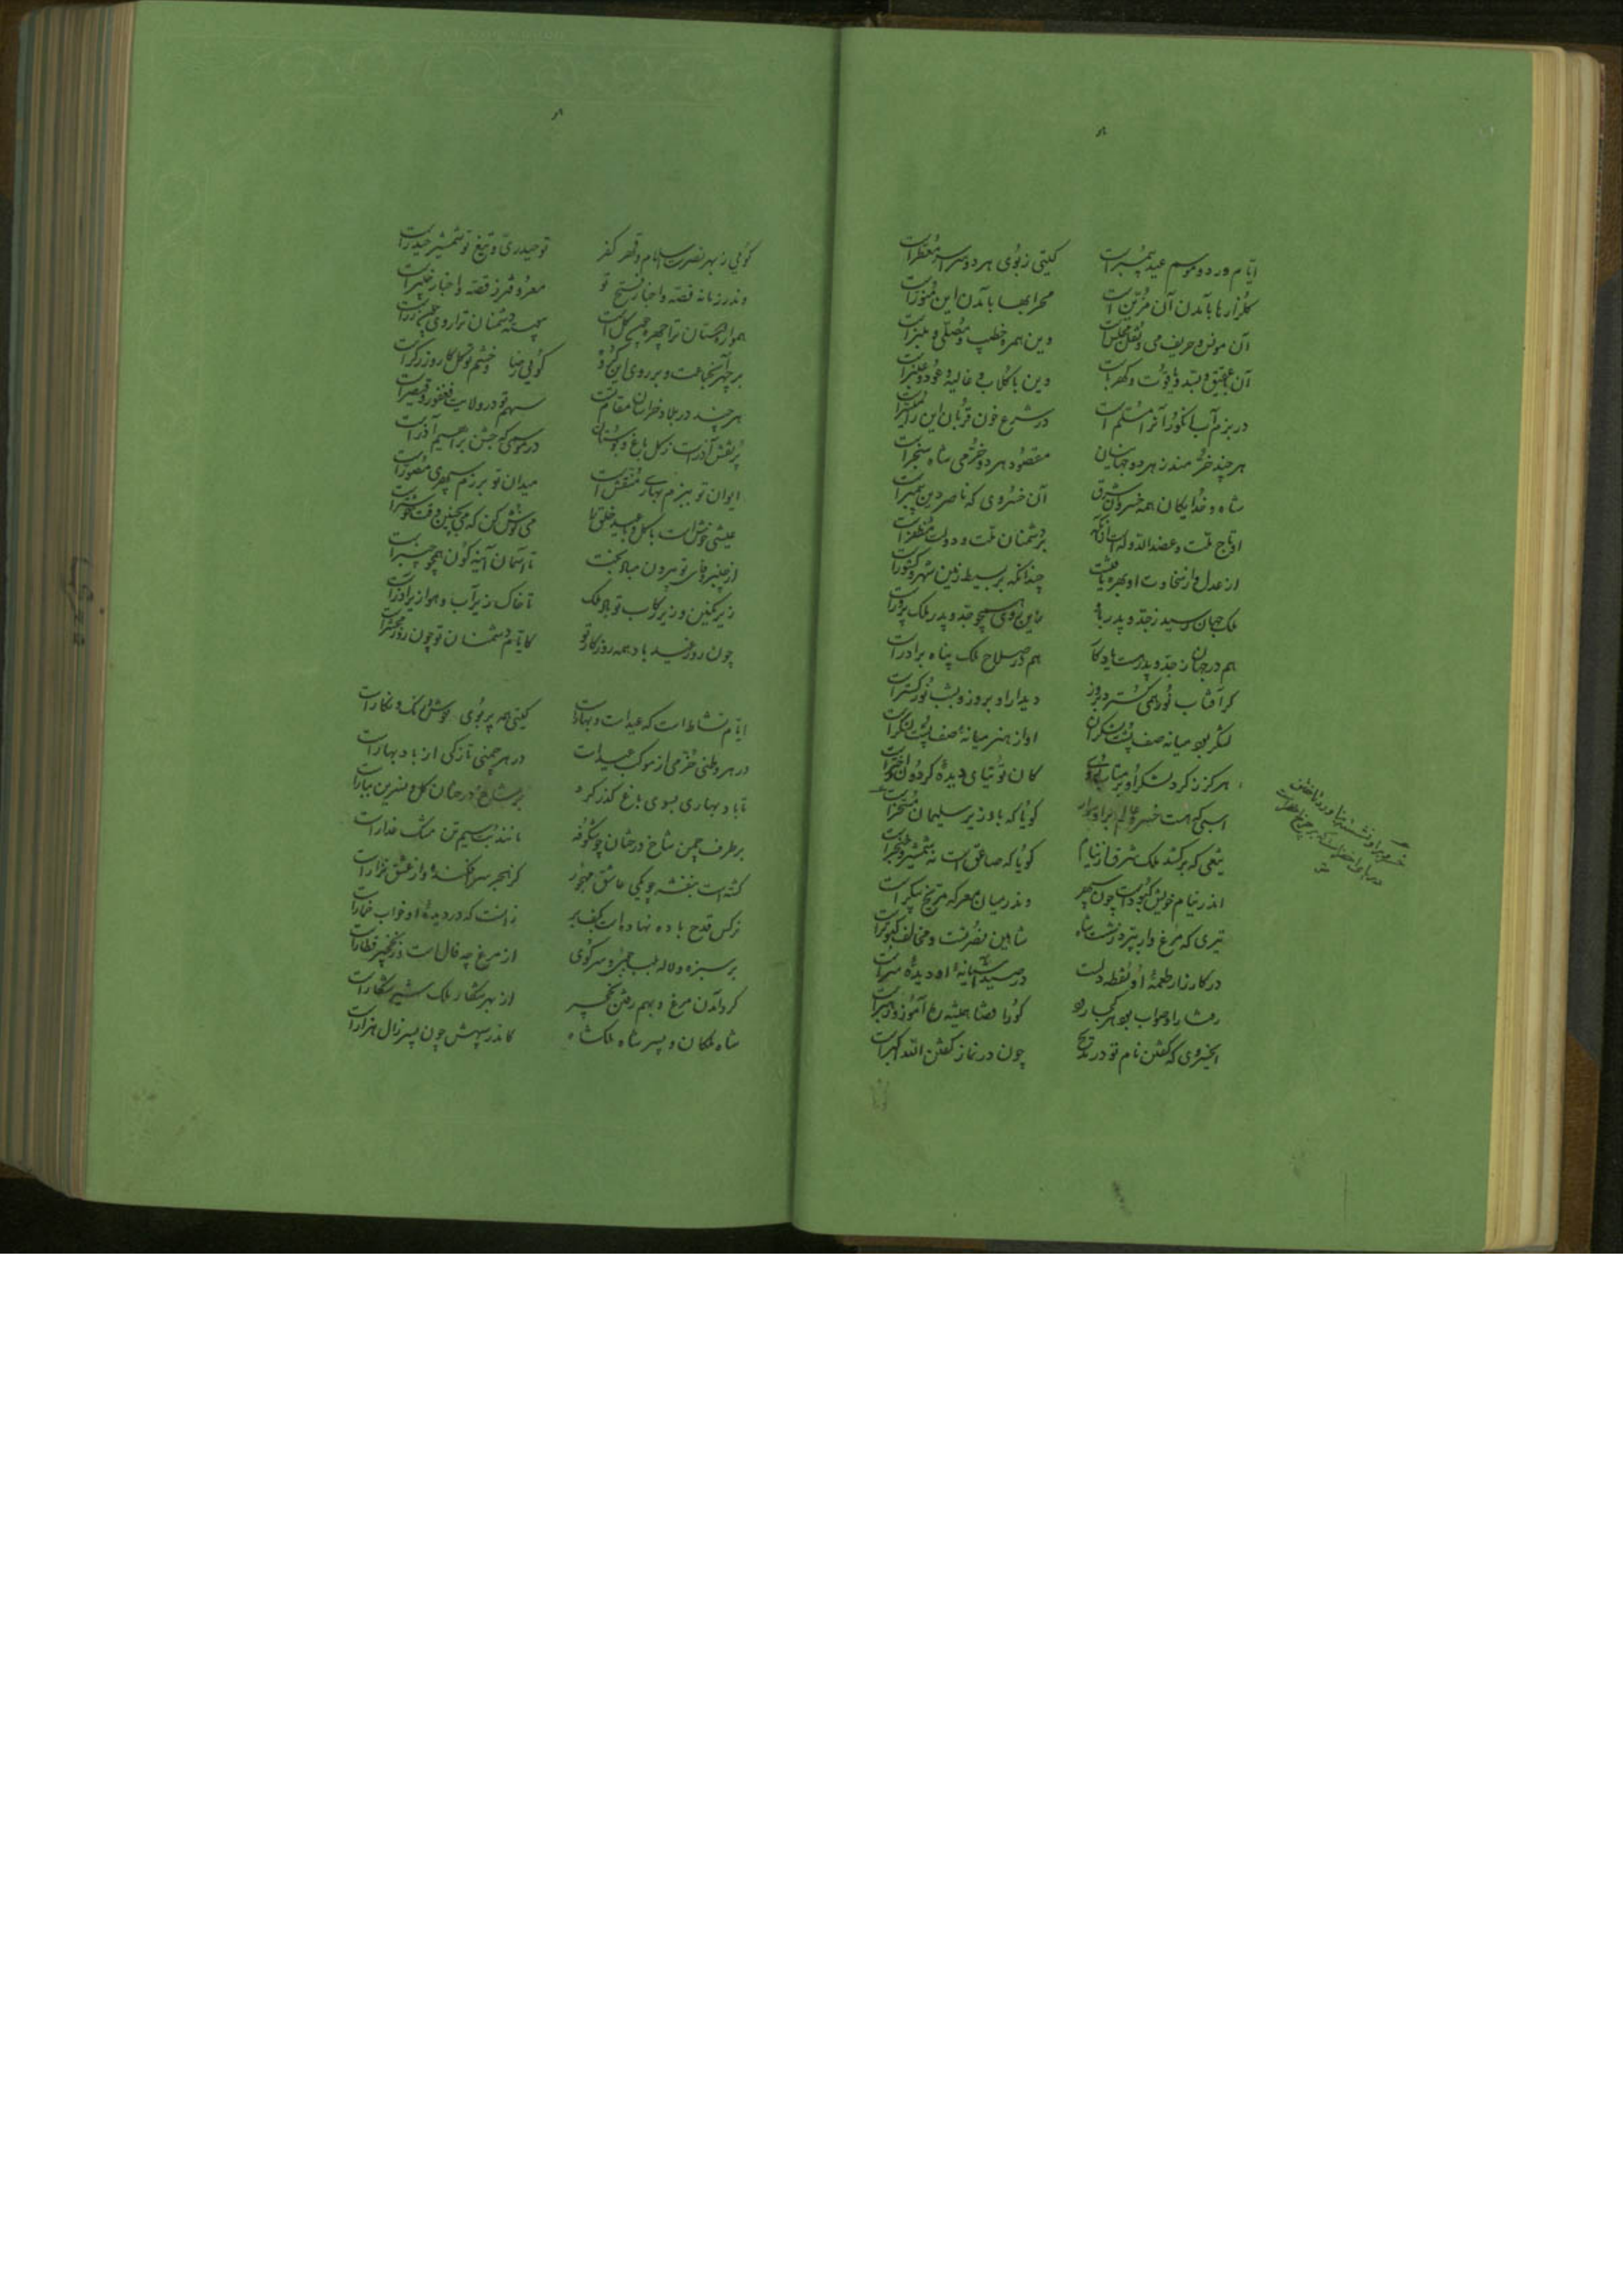 ایام ورد و موسم عید پیمبر است
گیتی ز بوی هر دو سراسر معطر است
گلزارها بآمدن آن مزین است
محرابها بآمدن این منور است
آن مونس و حریف می و نقل و مجلس است
وین همره خطیب و مصلی و منبر است
آن با عقیق و بسد و یاقوت و کهرباست
وین با گلاب و غالیه و عود و عنبر است
در بزم آب انگور آنرا مسلم است
در شرع خون قربان این را میسر است
هر چند خرمند ز هر دو جهانیان
مقصود هر دو خرمی شاه سنجر است
شاه و خدایگان همه خسروان شرق
آن خسروی که ناصر دین پیمبر است
او تاج ملت و عضدالدوله است از آنکه
بر دشمنان ملت و دولت مظفر است
از عدل و از سخاوت او بهره یافتست
چندانکه بر بسیط زمین شهر و کشور است
ملک جهان رسید ز جد و پدر باو
زین روی همچو جد و پدر ملک پرور است
هم در جهان ز جد و پدر هست یادگار
هم در صلاح ملک پناه برادر است
گر آفتاب نور همی گسترد بروز
دیدار او بروز و بشب نور گستر است
لشکر بود میانه صف پشت سرکشان
او از هنر میانه صف پشت لشکر است
هرگز ز گرد لشکر او بر متاب روی
کان توتیای دیده گردون و اختر است
اسبی که هست خسرو عالم برو سوار
گویا که باد زیر سلیمان مسخر است
تیغی که برکشد ملک شرق از نیام
گویا که صاعق است نه شمشیر و خنجر است
اندر نیام خویش کبود است چون سپهر
وندر میان معرکه مریخ پیکر است
تیری که مرغ وار بپرد ز شست شاه
شاهین نصرتست و مخالف کبوتر است
در کارزار طعمه او نقطه دلست
در صید آشیانه او دیده سر است
ای خسروی که گفتن نام تو در مدیح
چون در نماز گفتن الله اکبر است
گوئی ز بهر نصرت اسلام و قهر کفر
تو حیدری و تیغ تو شمشیر حیدر است
وندر زمانه قصه و اخبار فتح تو
معروفتر ز قصه و اخبار خیبر است
همواره دوستان ترا چهره چون گل است
پیوسته دشمنان ترا روی چون زر است
هر چند در بلاد خراسان مقام تست
سهم تو در ولایت فغفور و قیصر است
پر نقش آذر است ز گل باغ و بوستان
در موسمی که جشن براهیم آذر است
ایوان تو ببزم بهاری منقش است
میدان تو برزم سپهری مصور است
عیشی خوش است با گل و با عید خلق را
می نوش کن که می بچنین وقت خوشتر است
از چنبر وفای تو بیرون مباد بخت
تا آسمان آینه گون همچو چنبر است
زیر نگین و زیر رکاب تو باد ملک
تا خاک زیر آب و هوا زیر آذر است
چون روز عید باد همه روزگار تو
کایام دشمنان تو چون روز محشر است
ایام نشاط است که عید است و بهار است
گیتی همه پر بوی خوش و رنگ و نگار است
در هر وطنی خرمی از موکب عید است
در هر چمنی تازگی از باد بهار است
تا باد بهاری بسوی باغ گذر کرد
بر شاخ درختان گل و نسرین ببار است
بر طرف چمن شاخ درختان چو شکوفه
مانند بت سیم تن مشک عذار است
گشته است بنفشه چو یکی عاشق مهجور
کز هجر سرافکنده و از عشق نزار است
نرگس قدح باده نهاده است بکف بر
زانست که در دیده او خواب خمار است
بر سبزه و لاله بلب جوی و سر کوی
از مرغ چه فال است وز نخچیر قطار است
گرد آمدن مرغ و بهم رفتن نخچیر
از بهر شکار ملک شیر شکار است
شاه ملکان و پسر شاه ملکشاه
کاندر سپهش چون پسر زال هزار است